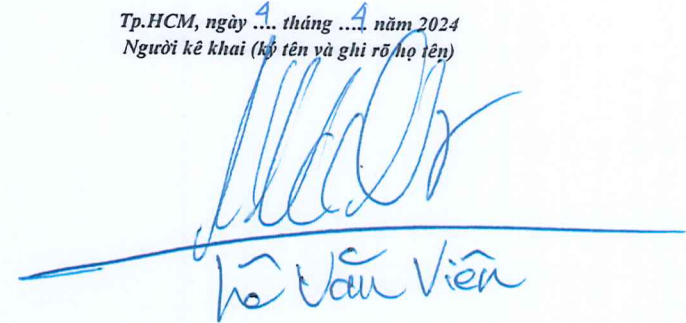 Tp.HCM, ngày 4 tháng 4 năm 2024
Người kê khai (ký tên và ghi rõ họ tên)
Lê Văn Viên